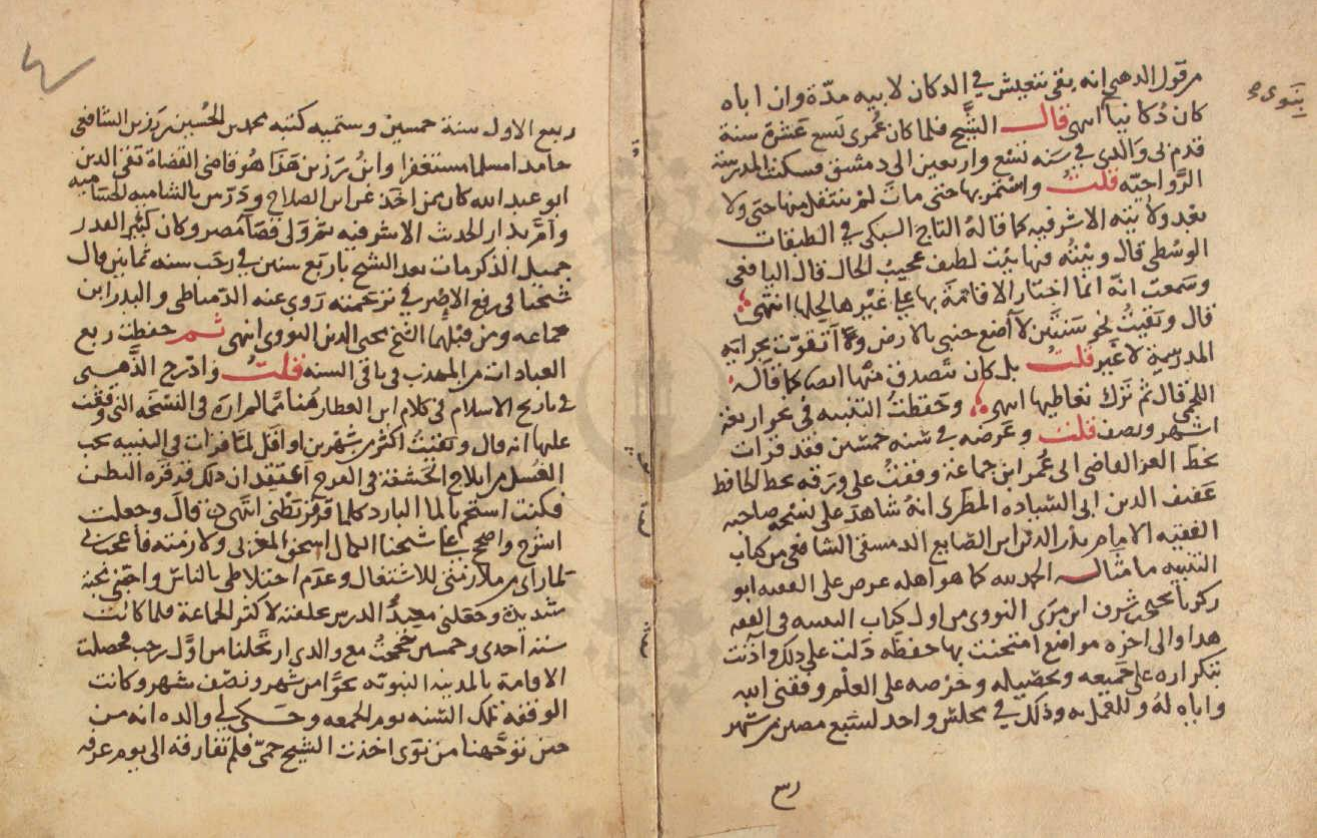 من قول الذهبي انه بقي يتعيش في الدكان لابيه مدة وان اباه
بنوى
كان دكانيا انتهى قال الشيخ فلما كان عمرى تسع عشرة سنة
قدم بى والدى في سنه تسع واربعين الى دمشق فسكنت المدرسة
الرواحيه قلت واستمر بها حتى مات لم ينتقل منها حتى ولا
بعد ولايته الاشرفيه كما قاله التاج السبكى في الطبقات
الوسطى قال وبيته فيها بيت لطيف عجيب الحال قال اليافعى
وسمعت انه انما اختار الاقامة بها على غيرها لحلها انتهى
قال وبقيت نحو سنتين لا اضع جنبى بالارض واتقوت بجراية
المدرسة لا غير قلت بل كان يتصدق منها ايضا كما قاله
اللخمى قال ثم ترك تعاطيها انتهى وحفظت التنبيه في نحو اربعة
اشهر ونصف قلت وعرضه في سنه خمسين فقد قرات
بخط العز القاضى ابى عمر ابن جماعة وقفت على ورقه بخط الحافظ
عفيف الدين ابى السياده المطرى انه شاهد على نسخه صاحبه
الفقيه الامام بدر الدين ابن الصايغ الدمشقى الشافعى من كتاب
التنبيه ما مثاله الحمد لله كما هو اهله عرض على الفقيه ابو
زكريا يحيى بن شرف ابن مرى النووى من اول كتاب التنبيه في الفقه
هذا والى اخره مواضع امتحنت بها حفظه دلت على ذلك واذنت
بتكراره على جميعه وتحصيله وحرصه على العلم وفقنى الله
واياه له وللعمل به وذلك في مجلس واحد لسبع مضين من شهر
ربيع الاول سنة خمسين وستميه كتبه محمد بن الحسين بن رزين الشافعى
حامدا مسلما مستغفرا وابن رزين هذا هو قاضى القضاة تقى الدين
ابو عبد الله كان ممن اخذ عن ابن الصلاح ودرس بالشاميه الحساميه
وام بدار الحديث الاشرفيه ثم ولى قضا مصر وكان كبير القدر
جميل الذكر مات بعد الشيخ باربع سنين في رجب سنه ثمانين قال
شيخنا فى رفع الاصر في ترجمته روى عنه الدمياطى والبدر ابن
جماعه ومن قبلهما الشيخ محيى الدين النووى انتهى ثم حفظت ربع
العبادات من المهذب فى باقى السنه قلت وادرج الذهبى
في تاريخ الاسلام فى كلام ابن العطار هنا مما لم اره فى النسخه التى وقفت
عليها انه قال وبقيت اكثر من شهرين او اقل لما قرات في التنبيه يجب
الغسل من ايلاج الحشفة فى الفرج اعتقد ان ذلك قرقره البطن
فكنت استحم بالما البارد كلما قرقر بطنى انتهى قال وجعلت
اشرح واصحح على شيخنا الكمال اسحق المغربى ولازمته فاعجب بى
لما راى من ملازمتى للاشتغال وعدم اختلاطى بالناس واحبنى محبة
شديدة وجعلنى معيد الدرس بحلقته لاكثر الجماعة فلما كانت
سنة احدى وخمسين حججت مع والدى ارتحلنا من اول رجب فحصلت
الاقامة بالمدينه النبويه نحوا من شهر ونصف شهر وكانت
الوقفه تلك السنه يوم الجمعه وحكى لى والده انه من
حين توجهنا من نوى اخذت الشيخ حمى فلم تفارقه الى يوم عرفه